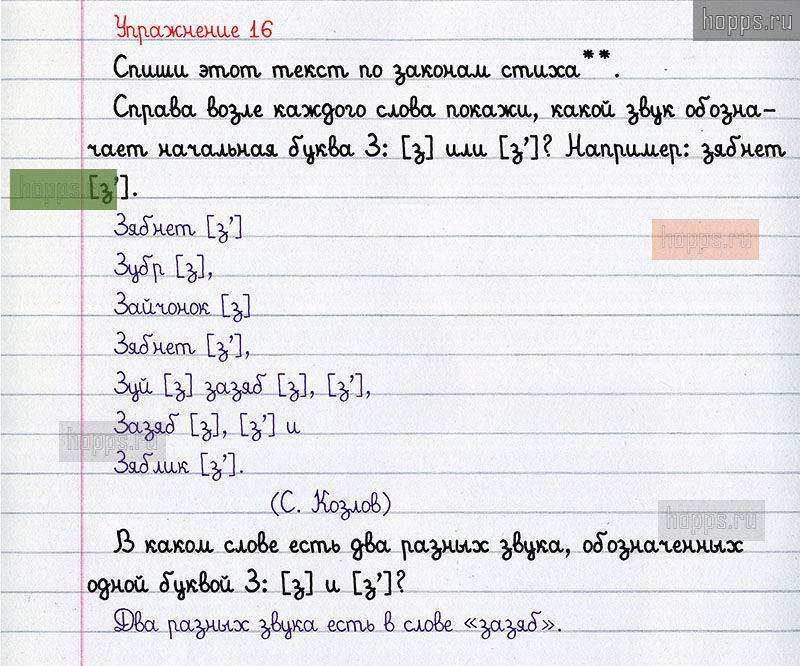 hopps.ru
Упражнение 16
Спиши этот текст по законам стиха**.
Справа возле каждого слова покажи, какой звук обозна-
чает начальная буква З: [з] или [з’]? Например: зябнет
hopps.ru [з’].
Зябнет [з’]
hopps.ru
Зубр [з],
Зайчонок [з]
Зябнет [з’],
Зуй [з] зазяб [з], [з’],
Зазяб [з], [з’] и
hopps.ru
Зяблик [з’].
(С. Козлов)
hopps.ru
В каком слове есть два разных звука, обозначенных
одной буквой З: [з] и [з’]?
Два разных звука есть в слове «зазяб».